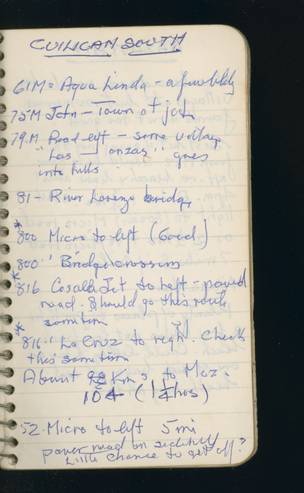 CULICAN SOUTH
61M = Agua Linda - a few bldg
75M Jctn - Town at jct
79.M Road left - some village
"Las onzas" goes
into hills
81 - River Lorenzo bridge
*800 Micro to left (Good)
800 " Bridge crossing
*816 Cosalla Jct to left - paved
road. Should go this route
sometime
*816.1 La Cruz to right. Check
this sometime
About 98 Kms to Maz.
104 (1½ hrs)
52. Micro to left 5 mi
paver road on
Little chance to get off?